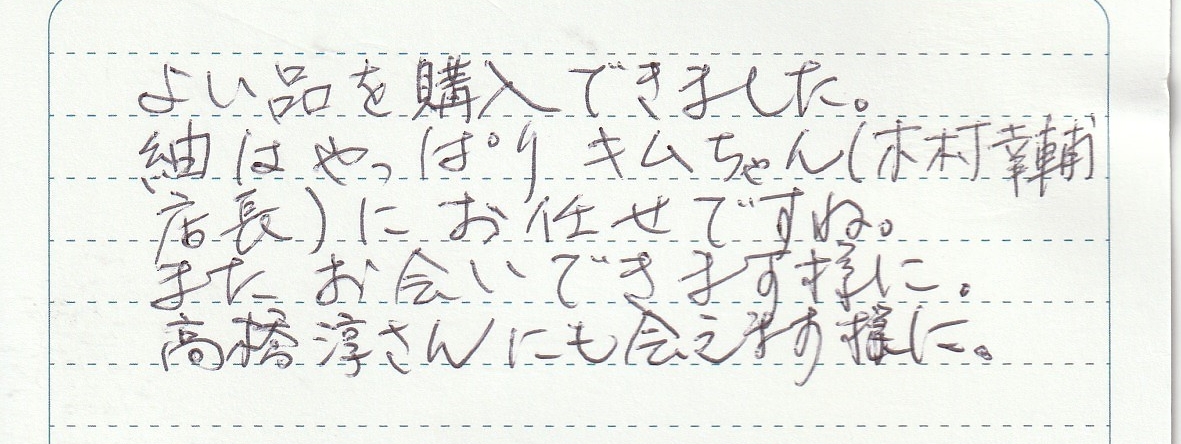 よい品を購入できました。
紬はやっぱりキムちゃん(木村幸輔
店長)にお任せですね。
またお会いできます様に。
高橋淳さんにも会えます様に。